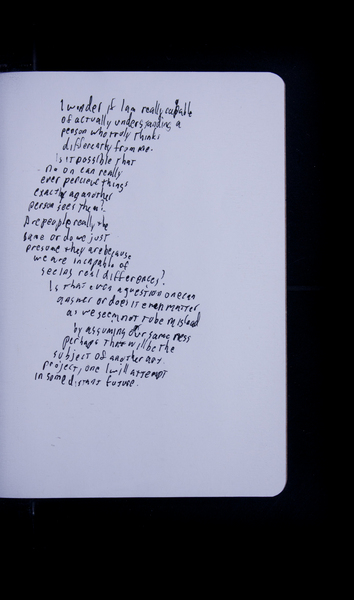 I wonder if I am really capable
of actually understanding a
person who truly thinks
differently from me.
Is it possible that
no on can really
ever percieve things
exactly as another
person sees them?
Are people really the
same or do we just
presume they are because
we are incapable of
seeing real differences?
Is that even a question one can
answer or does it even matter
as we seem not to be an island
by assuming our sameness
perhaps that will be the
subject of another art
project, one I will attempt
in some distant future.